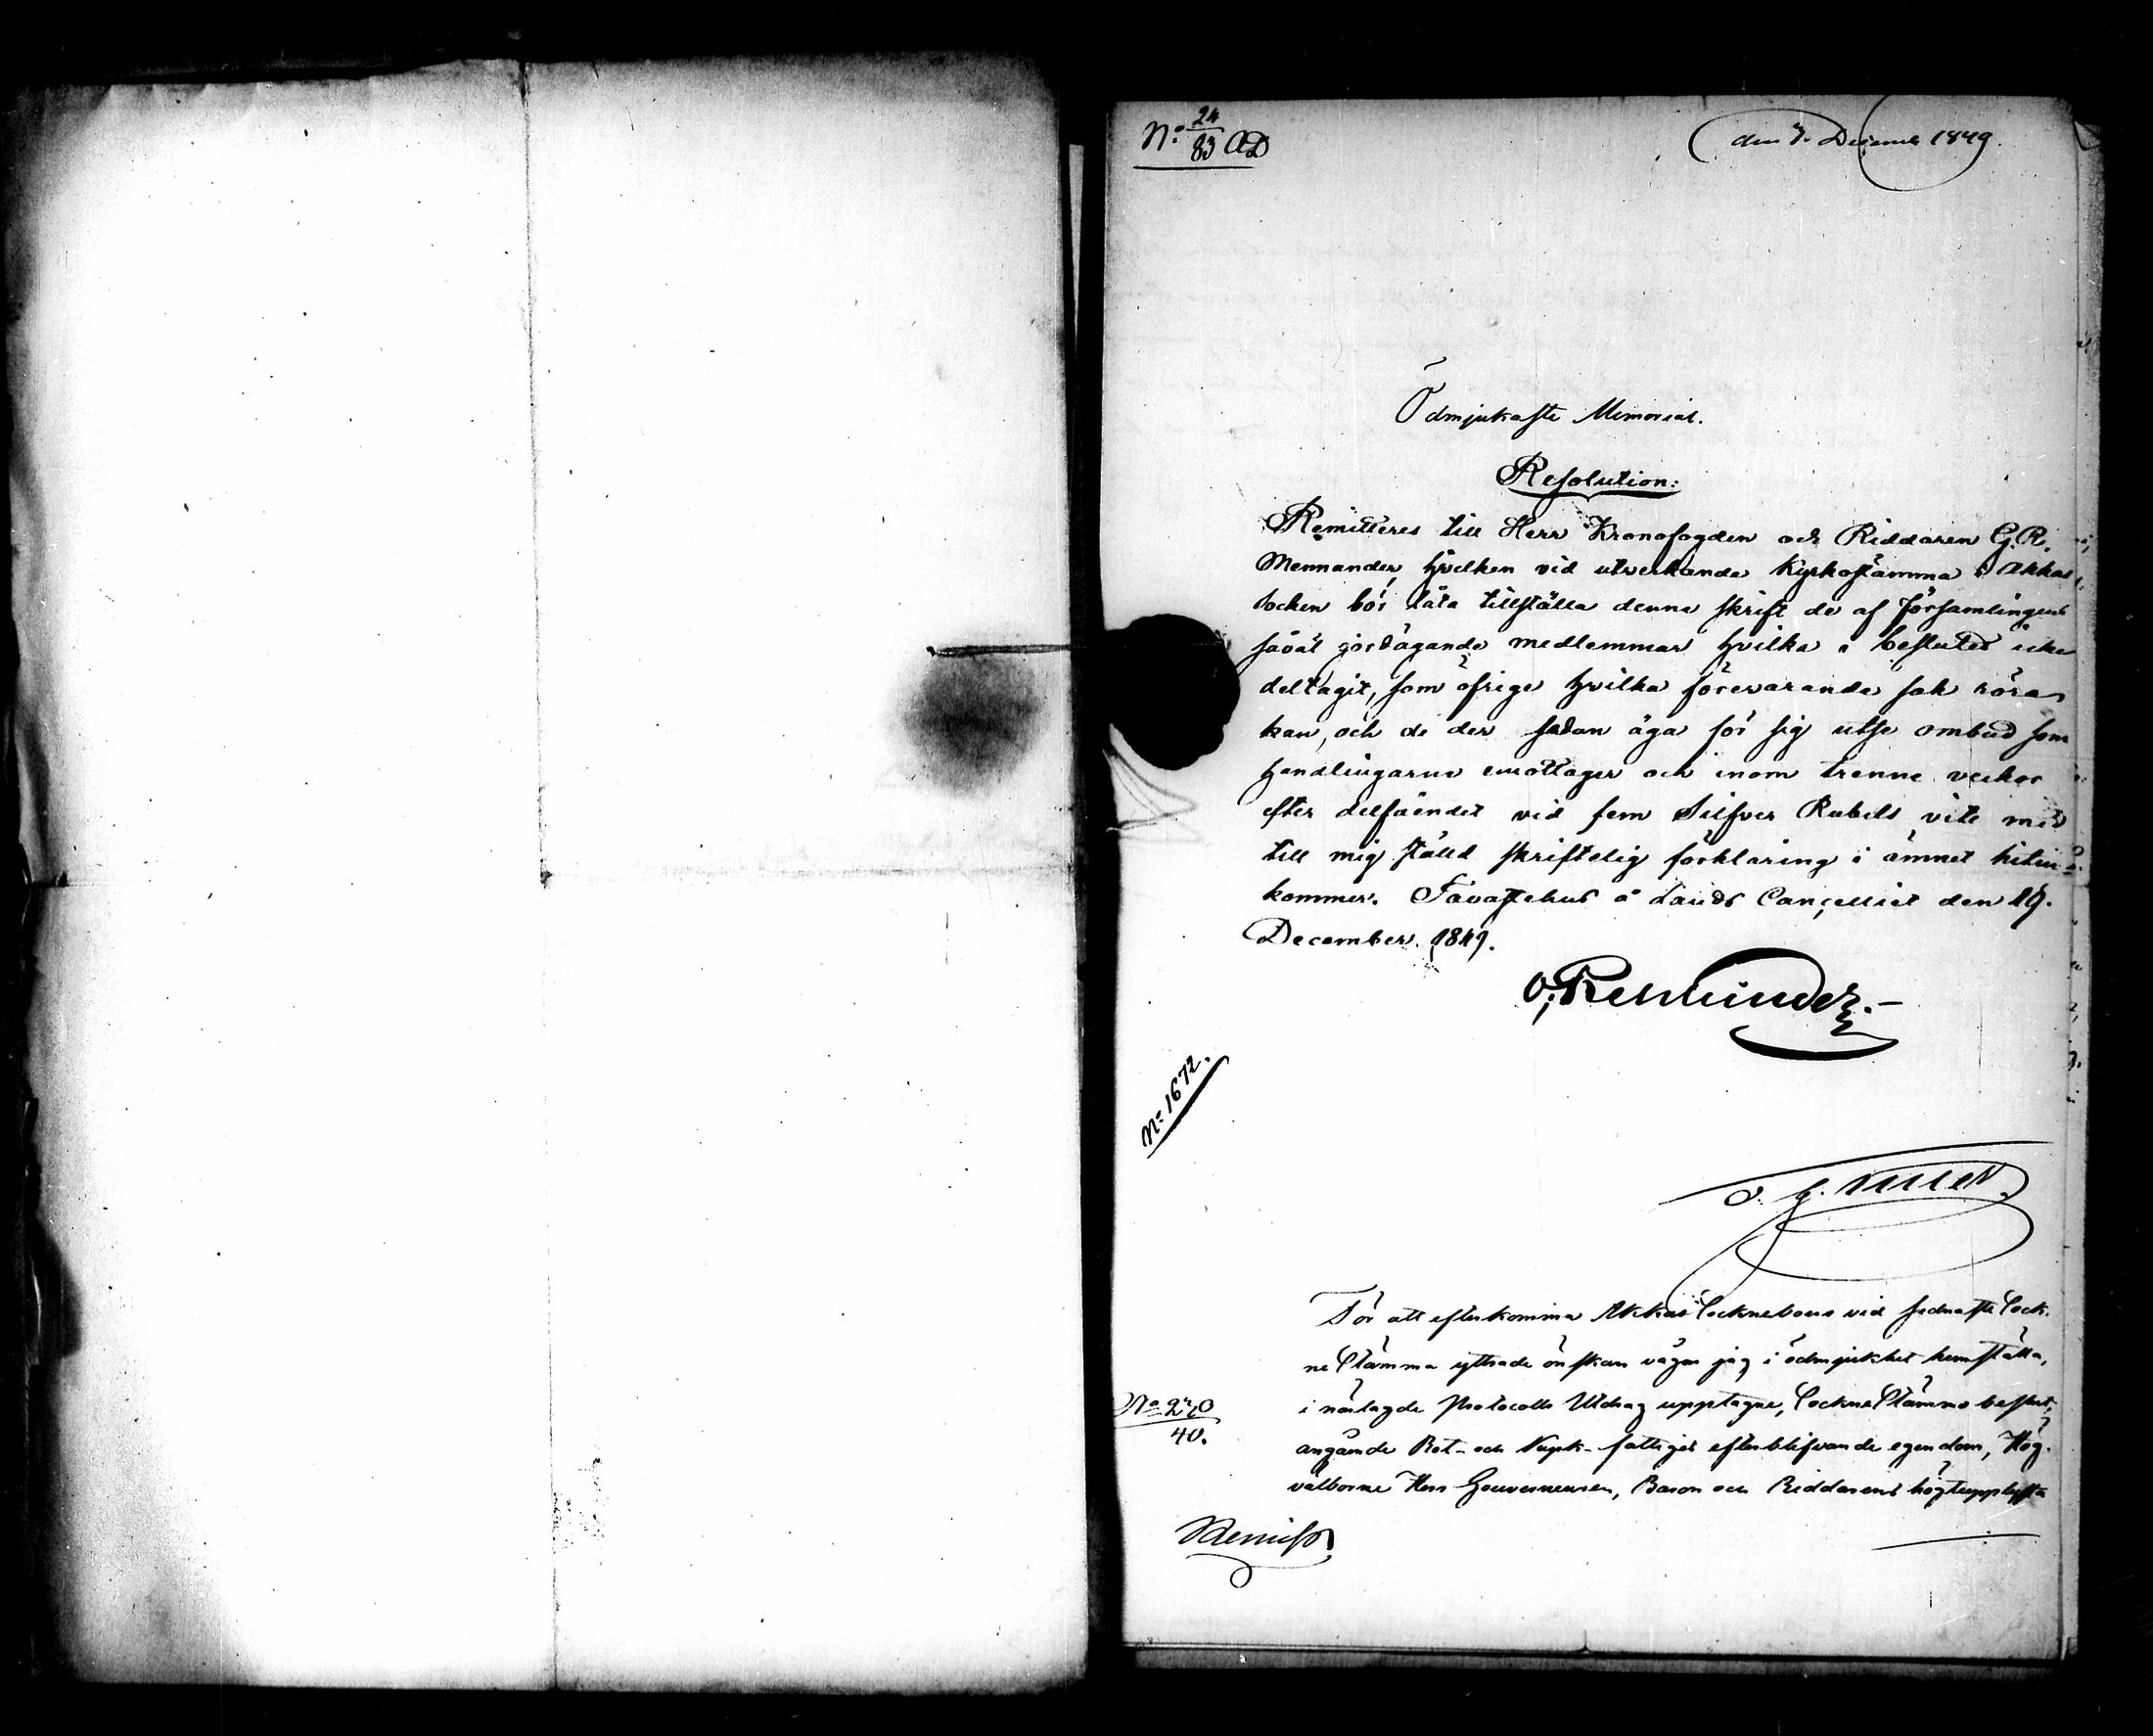 No 24/83 AD
den 7. Decemb 1849.
Ödmjukaste Memorial.
Resolution:
Remitteres till Herr Kronofogden och Riddaren G. R.
Mennander, hvilken vid utverkande Kyrkostämma i Akkas
socken bör låta tillställa denna skrift de af Församlingens
såväl jordägande medlemmar hvilka i beslutet icke
deltagit, som öfrige hvilka förevarande sak röra
kan, och de der sedan äga för sig utse ombud som
handlingarne emottager och inom trenne veckor
efter delfåendet vid fem Silfver Rubels vite med
till mig stäld skriftelig förklaring i ämnet hitin-
kommer. Tavastehus å Lands Cancelliet den 19.
December 1849.
O. Rehbinder.
No 1672.
För att efterkomma Akkas Sockneboers vid sednaste Sock-
ne Stämma yttrade önskan vågar jag i ödmjukhet hemställa,
i närlagde Protocolls Utdrag upptagne, Sockne Stämmo beslut,
No 270/40.
angående Rot- och Nupk- fattiges efterblifvande egendom, Hög-
välborne Herr Gouverneuren, Baron och Riddarens högtupplysta
Remiss